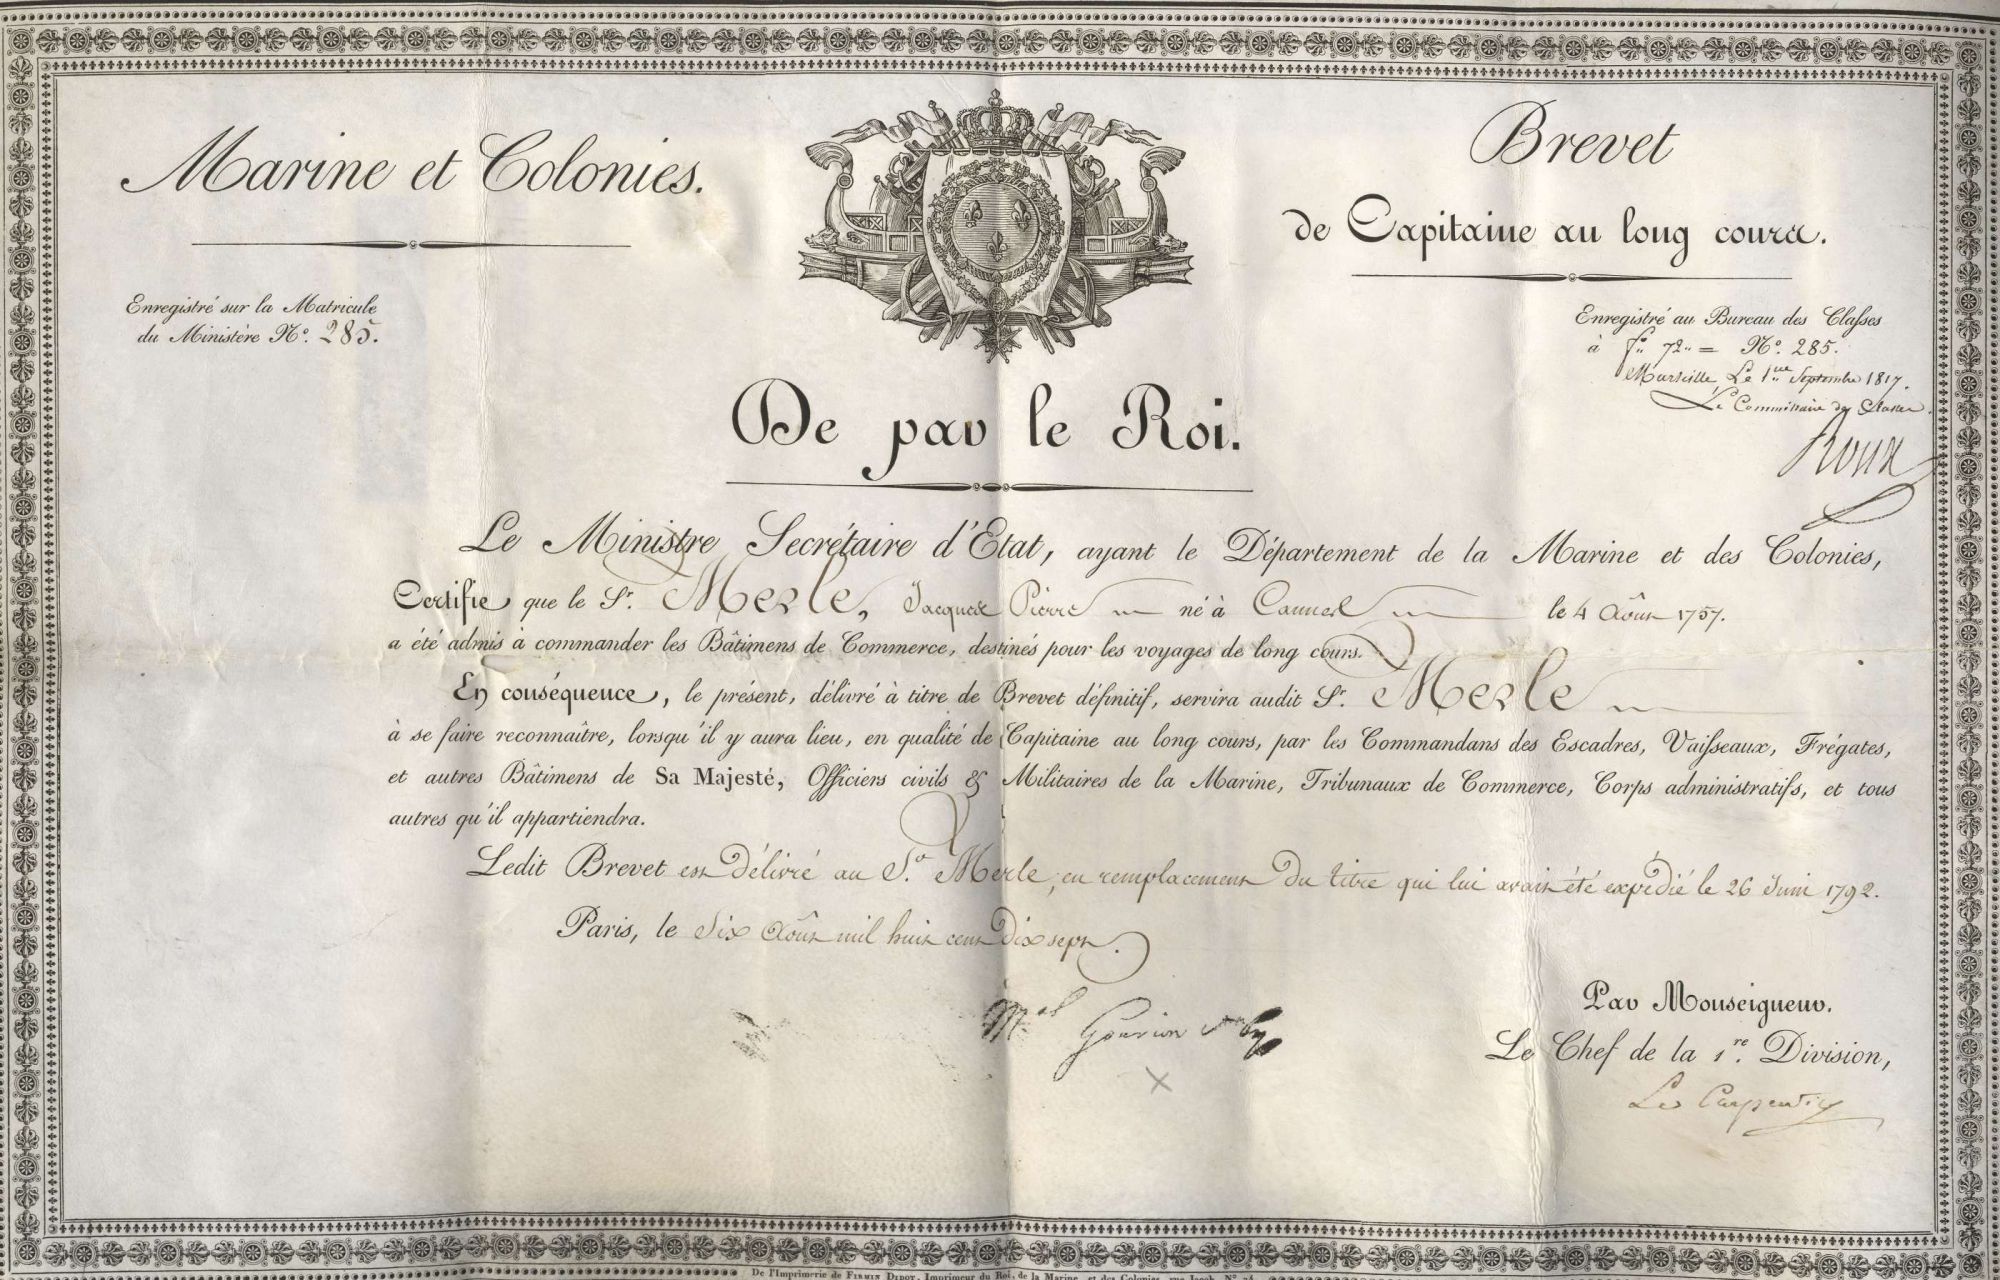 Marine et Colonies.
Brevet
de Capitaine au long cours.
Enregistré sur la Matricule
du Ministère N.º 285.
Enregistré au Bureau des Classes
à f.º 72 = N.º 285.
Marseille, Le 1.er Septembre 1817.
Le Commissaire des Classes
Roux
De par le Roi.
Le Ministre Secrétaire d'Etat, ayant le Département de la Marine et des Colonies,
Certifie que le S.r Merle, Jacques Pierre né à Cannes le 4 Août 1757.
a été admis à commander les Bâtimens de Commerce, destinés pour les voyages de long cours.
En conséquence, le présent, délivré à titre de Brevet définitif, servira audit S.r Merle
à se faire reconnaître, lorsqu'il y aura lieu, en qualité de Capitaine au long cours, par les Commandans des Escadres, Vaisseaux, Frégates,
et autres Bâtimens de Sa Majesté, Officiers civils & Militaires de la Marine, Tribunaux de Commerce, Corps administratifs, et tous
autres qu'il appartiendra.
Ledit Brevet est délivré au S.r Merle, en remplacement du titre qui lui avait été expédié le 26 Juin 1792.
Paris, le Six Août mil huit cent Dix sept.
M.al Gouvion S.t Cyr
Par Monseigneur.
Le Chef de la 1.re Division,
De l'Imprimerie de Firmin Didot, Imprimeur du Roi, de la Marine, et des Colonies, rue Jacob, N.º 24.